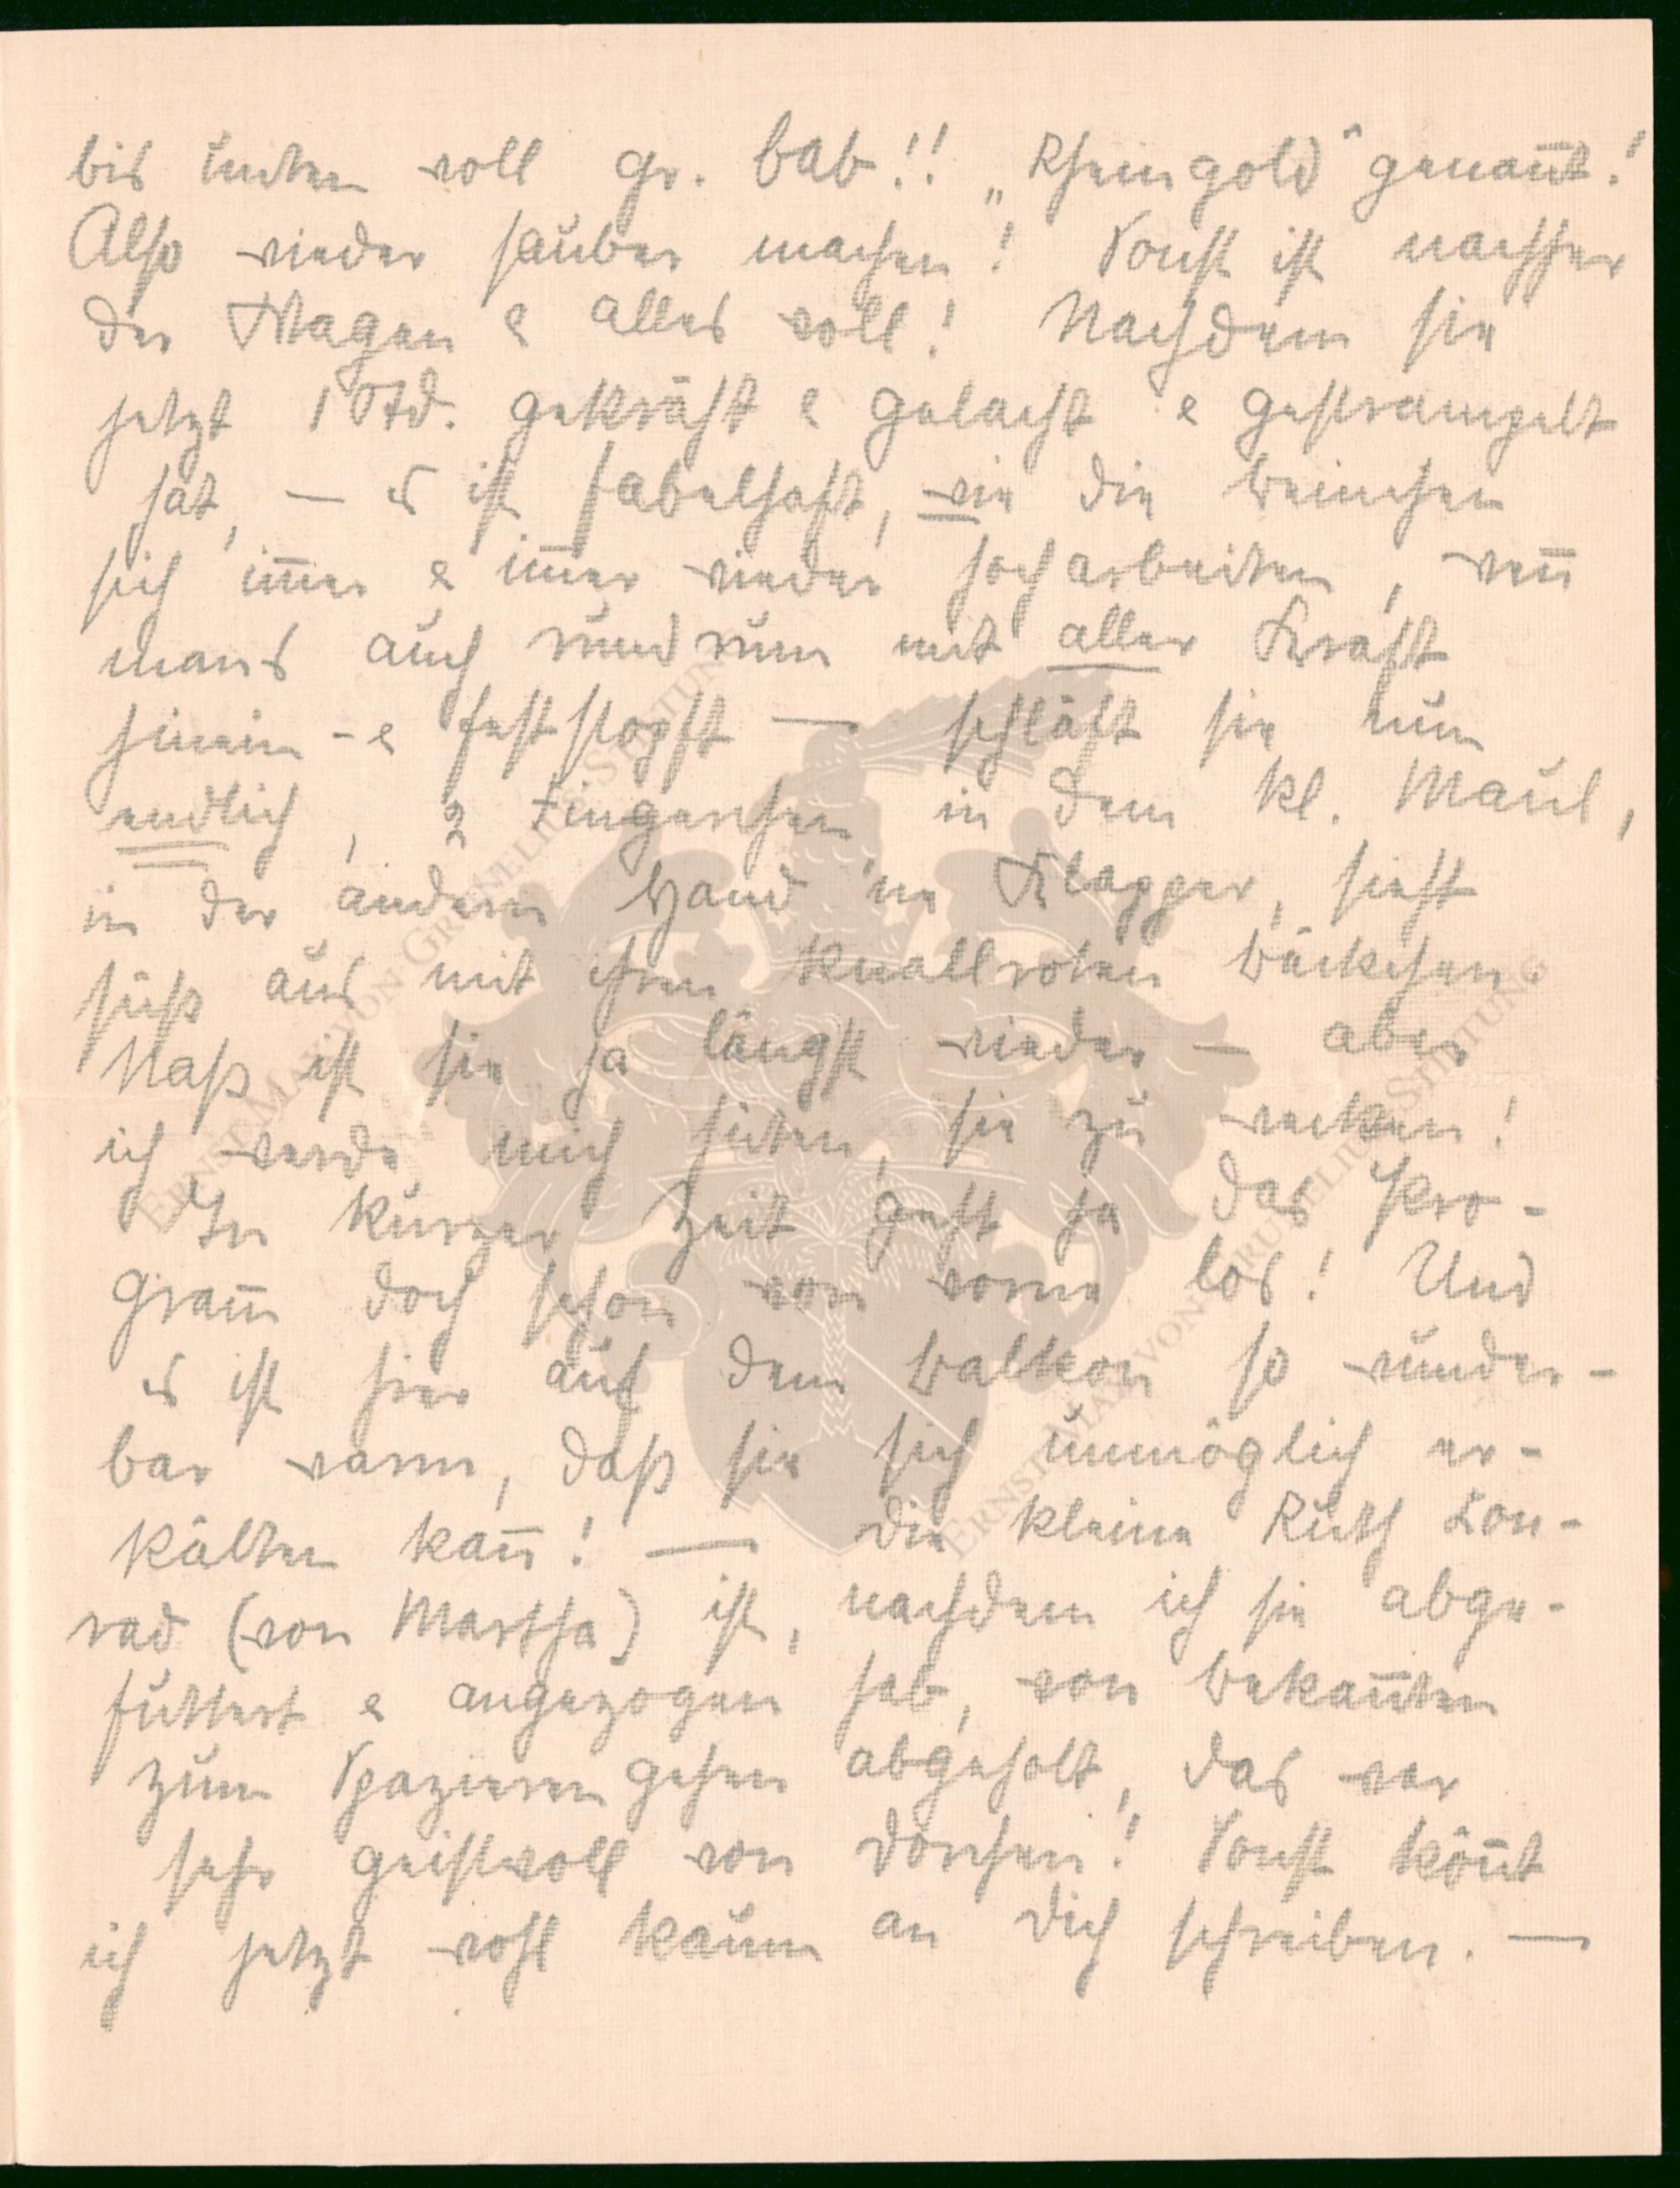 bis unten voll gr. bab!! „Rheingold" genannt!
Also wieder sauber machen! Sonst ist nachher
der Wagen & alles voll! Nachdem sie
jetzt 1 Std. gekräht & gelacht & gestrampelt
hat, — es ist fabelhaft, wie die Beinchen
sich im̅er & im̅er wieder hocharbeiten, wen̅
mans auch rundrum mit aller Kraft
hinein- & feststopft — schläft sie nun
endlich, 2 Fingerchen in dem kl. Maul,
in der andern Hand 'ne Klapper, sieht
süß aus mit ihren knallroten Bäckchen.
Naß ist sie ja längst wieder — aber
ich werde mich hüten, sie zu wecken!
In kurzer Zeit geht ja das Pro-
gram̅ doch schon von vorne los! Und
es ist hier auf dem Balkon so wunder-
bar warm, daß sie sich unmöglich er-
kälten kan̅! — Die kleine Ruth Kon-
rad (von Martha) ist, nachdem ich sie abge-
füttert & angezogen hab, von Bekan̅ten
zum Spazierengehen abgeholt, das war
sehr geistvoll von Dorchen! Sonst kön̅t
ich jetzt wohl kaum an Dich schreiben. —
ERNST MAX VON GRUNELIUS-STIFTUNG
ERNST MAX VON GRUNELIUS-STIFTUNG